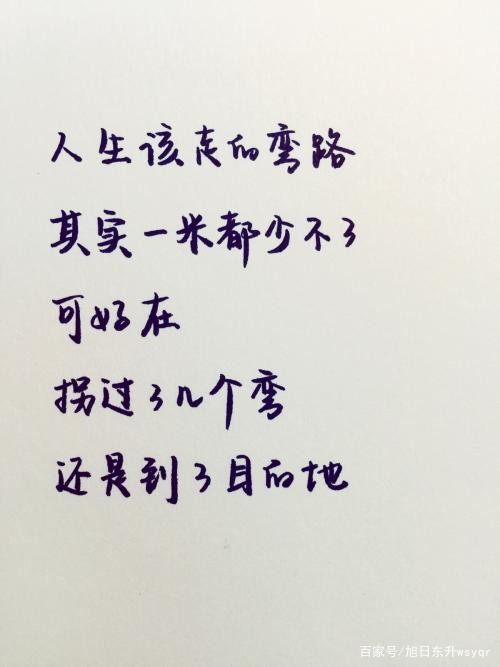 人生该走的弯路
其实一米都少不了
可好在
拐过了几个弯
还是到了目的地
百家号/旭日东升wsyqr